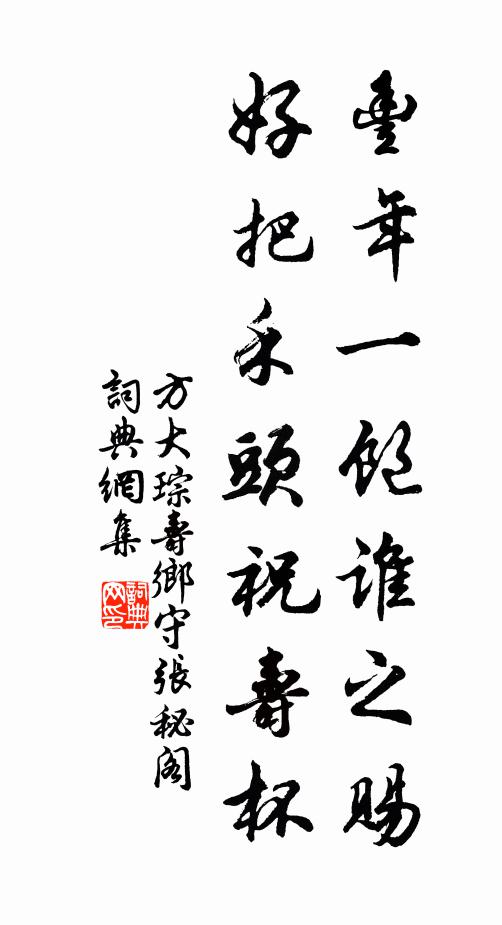 豐年一飽誰之賜
好把禾頭祝壽杯
方大琮壽鄉守張秘閣
詞典網集
詞典網印